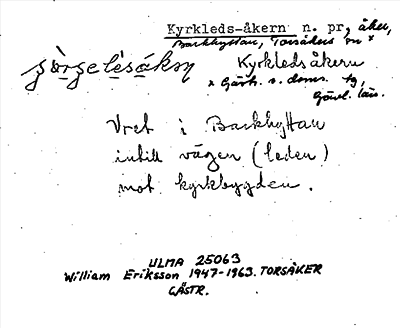 Kyrkleds-åkern n. pr, åker,
Backhyttan, Torsåkers sn x
Kyrkledsåkern
x Gästr. ö. doms. tg,
Gävl. län.
Vret i Backhyttan
intill vägen (leden)
mot kyrkbygden.
ULMA 25063
William Eriksson 1947-1963. TORSÅKER
GÄSTR.